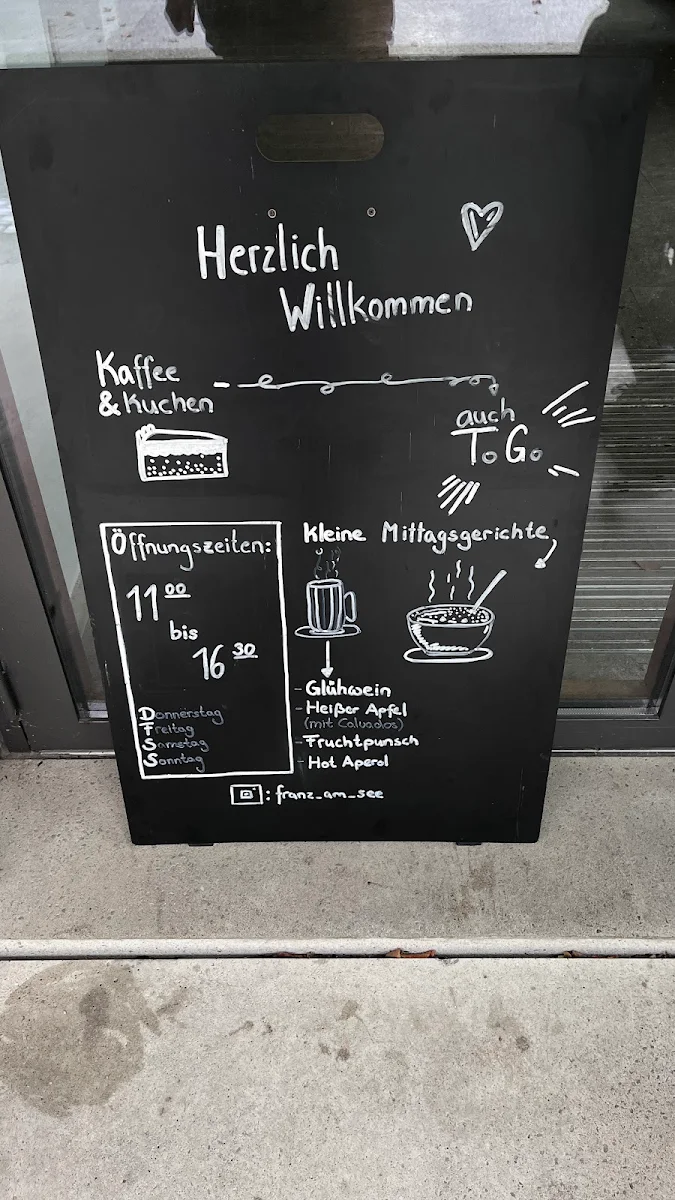 Herzlich
Willkommen
Kaffee
& Kuchen
auch
To Go
Öffnungszeiten:
11 00
bis
16 30
Donnerstag
Freitag
Samstag
Sonntag
Kleine Mittagsgerichte
- Glühwein
- Heißer Apfel
(mit Calvados)
- Fruchtpunsch
- Hot Aperol
: franz_am_see